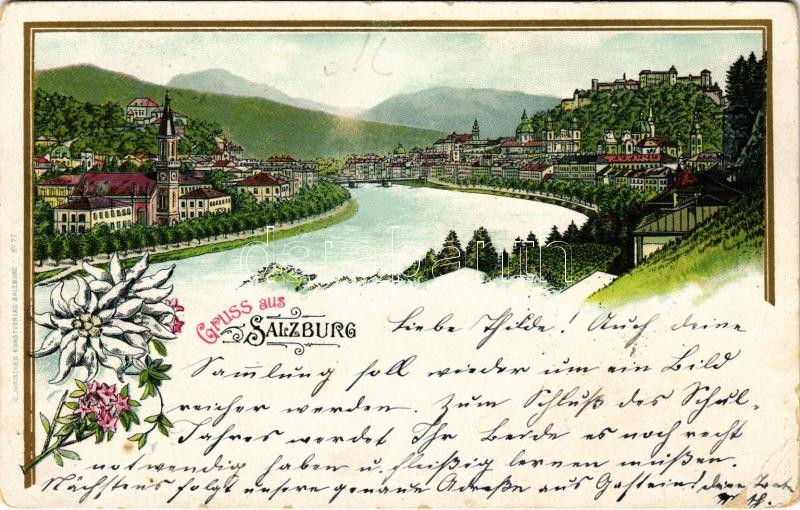 M
darabanth
C. JURISCHEK, KUNSTVERLAG SALZBURG. Nº 77
Gruss aus
SALZBURG
Liebe Thilde! Auch deine
Sammlung soll wieder um ein Bild
reicher werden. Zum Schluß des Schul-
Jahres werdet Ihr Beide es noch recht
notwendig haben u. fleißig lernen müßen.
Nächstens folgt unsere genaue Adreße aus Gastein. deine Tante
Th.